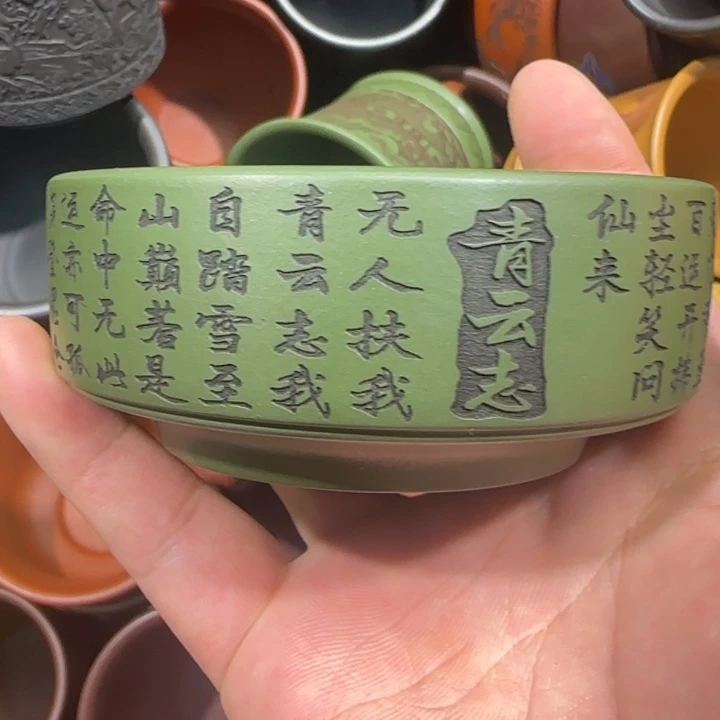 青云志
无人扶我
青云志我
自踏雪至
山巅若是
命中无此
运亦可孤
百运开
尘轻笑问
仙来